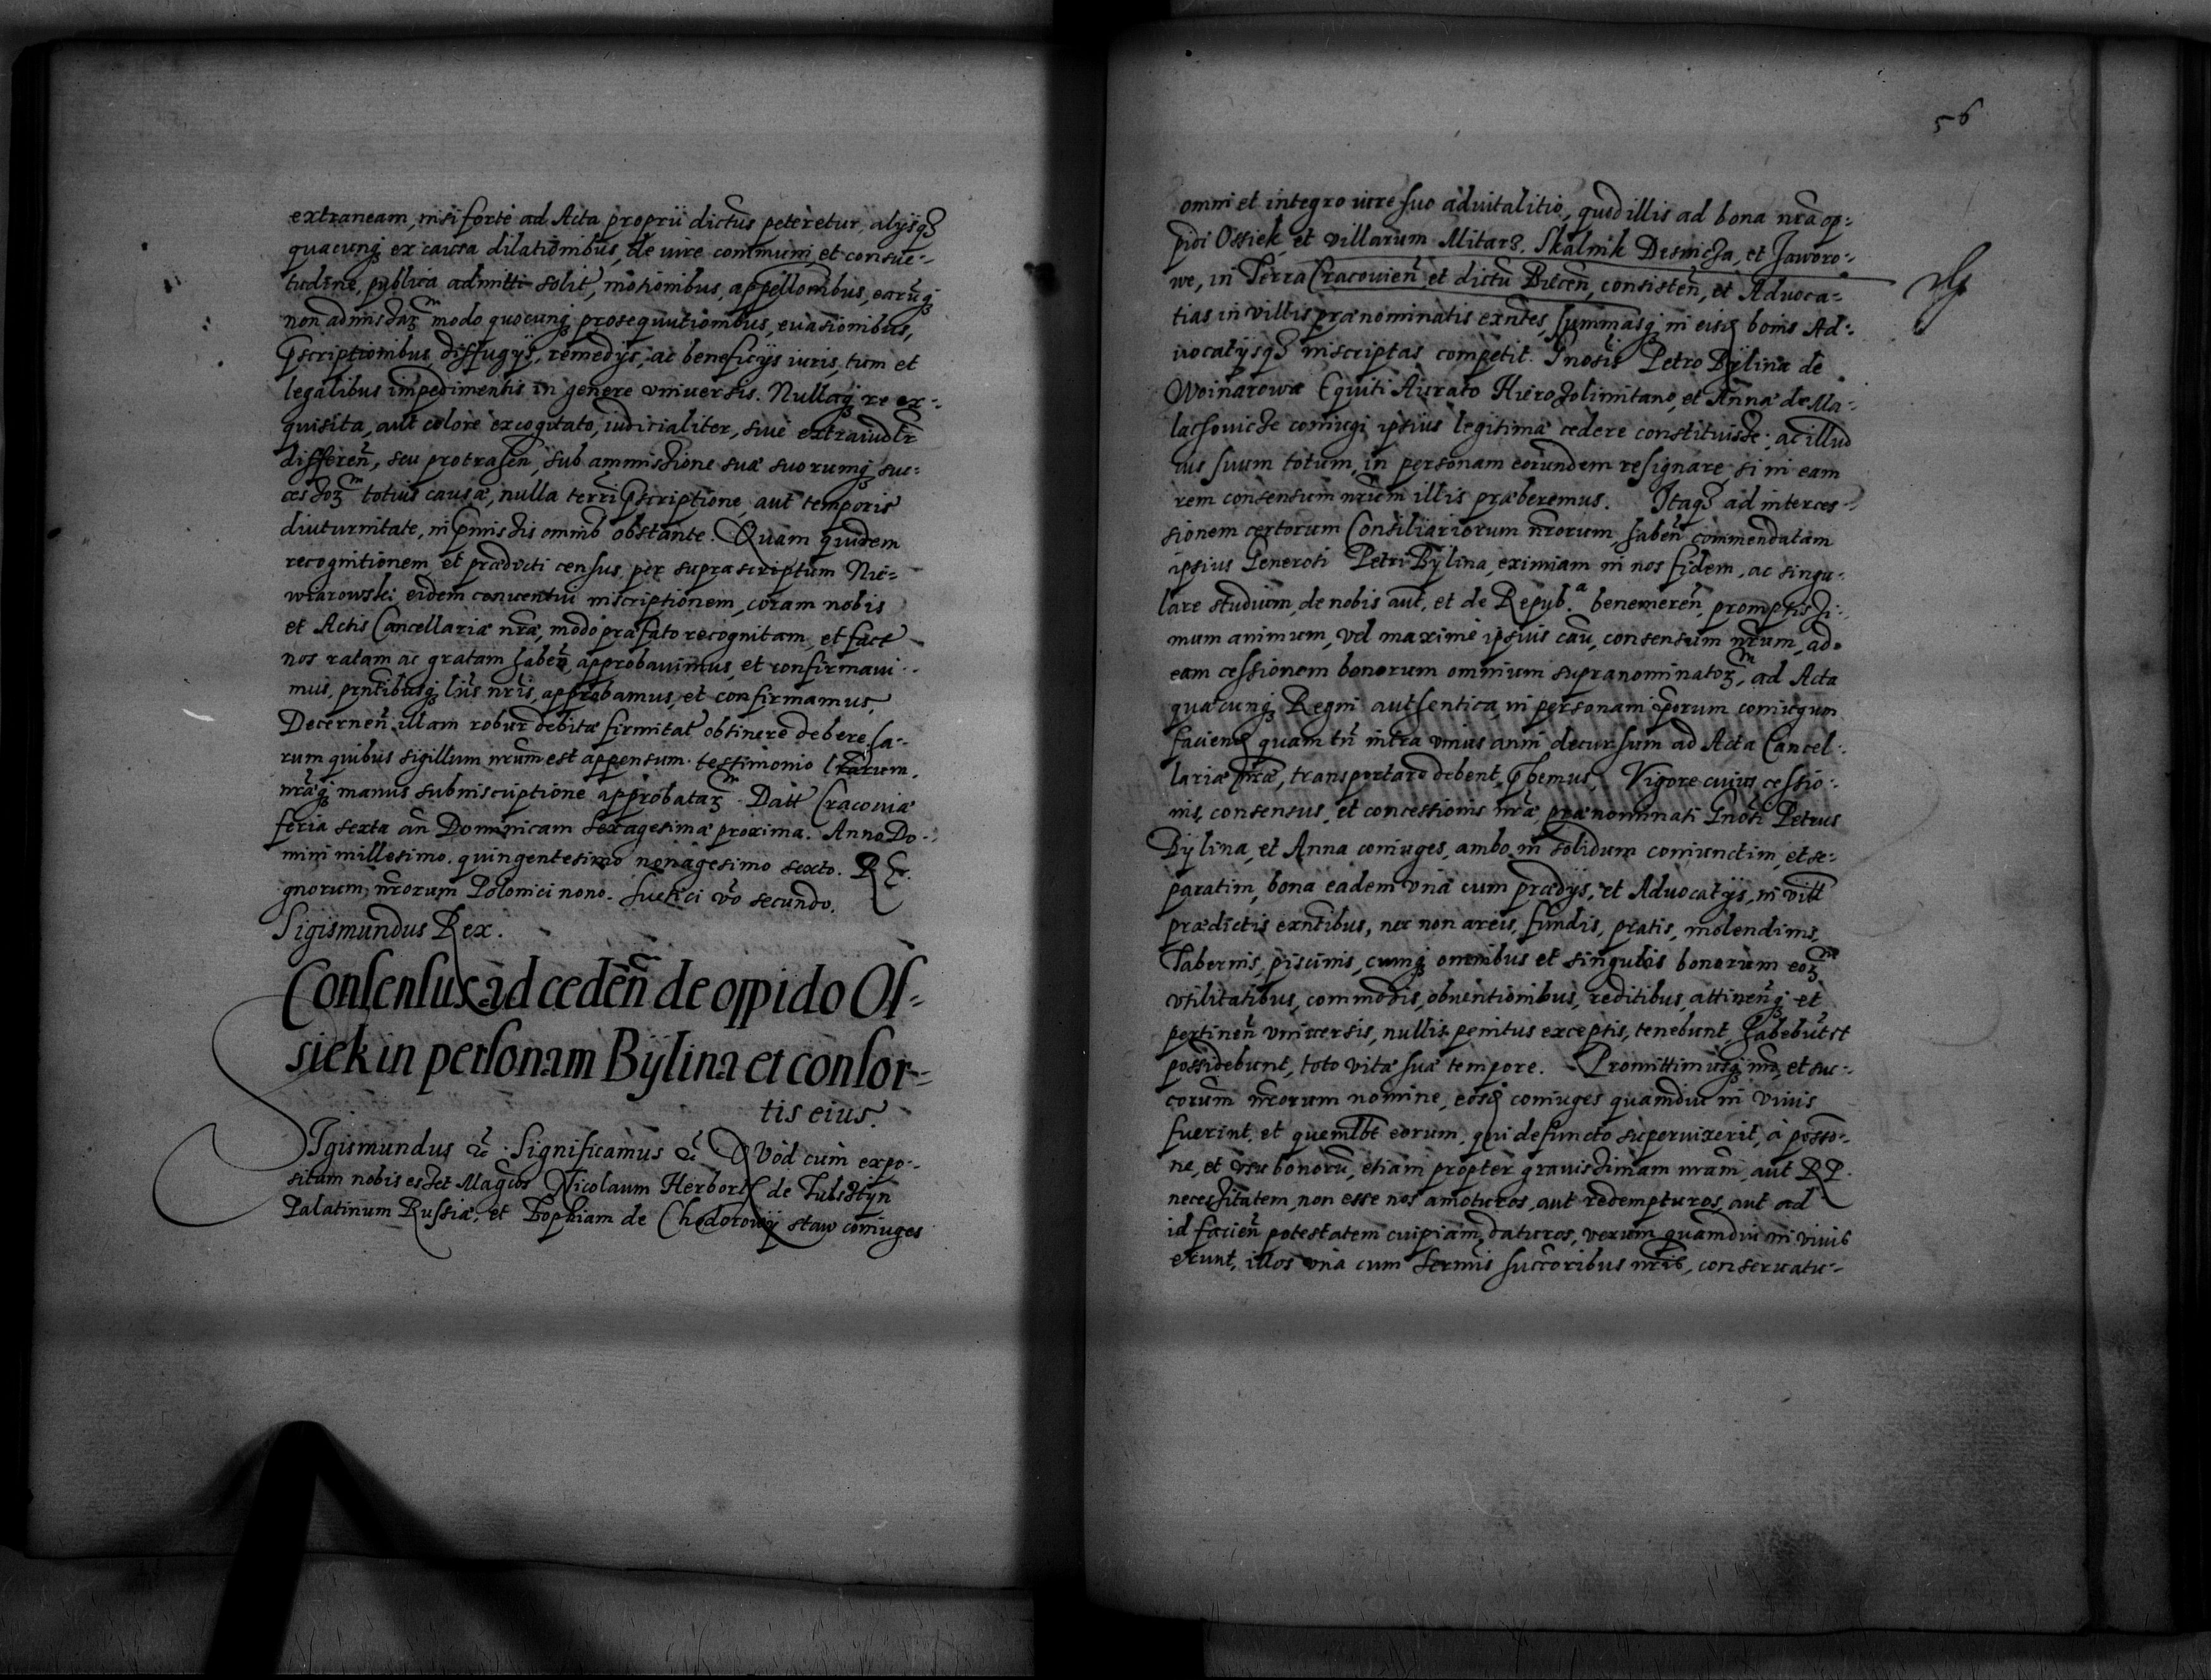 extraneam, nisi forte ad Acta proprii dictus peteretur, alijsq3
quacunq3 ex causa dilationibus, de iure communi, et consue-
tudine, publica admitti solit, motionibus, appellõnibus, earũq3
non admissar3 modo quocunq3 prosequutionibus, euasionibus,
pscriptionibus, diffugijs, remedijs, ac beneficijs iuris, tum et
legalibus impedimentis in genere vniuersis. Nullaq3 re ex-
quisita, aut colore excogitato, iudicialiter, siue extraiudltr
differeñ, seu protraheñ, sub ammissione suæ suorumq3 suc-
cessor3 totius causæ, nulla terri pscriptione, aut temporis
diuturnitate, in pmissis omnib obstante. Quam quidem
recognitionem et prædicti census, per suprascriptum Nie-
wiarowski eidem conuentui inscriptionem, coram nobis
et Actis Cancellariæ nræ, modo præfato recognitam, et fact
nos ratam ac gratam habeñ, approbauimus, et confirmaui-
mus, pntibusq3 lris nris, approbamus, et confirmamus,
Decerneñ illam robur debitæ firmitat obtinere debere, ha-
rum quibus sigillum nrum est appensum testimonio lrarum.
nraq3 manus subinscriptione approbatar3. Datt Cracouiæ
feria sexta añ Dominicam sexagesimæ proxima. Anno Do-
mini millesimo quingentesimo nonagesimo sexto. Re-
gnorum nrorum Polonici nono. Suetici vo secundo.
Sigismundus Rex.
Consensus ad cedeñ de oppido Os-
siek in personam Bÿlina et consor-
tis eius.
Sigismundus &c. Significamus &c Quod cum expo-
situm nobis esset Magcos Nicolaum Herbort de Fulsztÿn
Palatinum Russiæ, et Sophiam de Chodorowÿ staw coniuges
56
omni et integro iure suo aduitalitio, quod illis ad bona nra op-
pidi Ossiek, et villarum Mitar3. Skalnik Desnicza, et Jaworo-
we, in Terra Cracouieñ et dictu Bieceñ, consisteñ, et Aduoca-
tias in villis prænominatis exñtes, summasq3 in eisd bonis Ad-
uocatijsq3 inscriptas competit. Gnosis Petro Bÿlina de
Woinarowa Equiti Aurato Hierosolimitano, et Annæ de Ma-
lachouicze coniugi ipsius legitimæ cedere constituisse, ac illud
ius suum totum, in personam eorundem resignare, si in eam
rem consensum nrum illis præberemus. Itaq3 ad interces-
sionem certorum Consiliariorum nrorum, habeñ commendatam
ipsius Generosi Petri Bÿlina, eximiam in nos fidem, ac singu-
lare studium, de nobis aut, et de Repub.a benemereñ, promptissi-
mum animum, vel maxime ipsius cau, consensum nrum, ad
eam cessionem bonorum omnium supranominator3, ad Acta
quæcunq3 Regni authentica, in personam iporum coniugum
faciend quam tñ intra vnius anni decursum ad Acta Cancel-
lariæ nræ, transportare debent, phemus. Vigore cuius cessio-
nis, consensus, et concessionis nræ, prænominati Gnosi Petrus
Bÿlina, et Anna coniuges, ambo in solidum coniunctim, et se-
paratim, bona eadem vna cum prædijs, et Aduocatijs, in vill
prædictis exñtibus, nec non areis, fundis, pratis, molendinis,
Tabernis, piscinis, cumq3 omnibus et singulis bonorum eor3
vtilitatibus, commodis, obuentionibus, reditibus, attineñq3 et
pertineñ vniuersis, nullis penitus exceptis, tenebunt, habebũt et
possidebunt, toto vitæ suæ tempore. Promittimusq3 nro, et suc-
corum nrorum nomine, eosd coniuges quamdiu in viuis
fuerint, et quemlbt eorum, qui defuncto superuixerit, à posso-
ne, et vsu bonorũ, etiam propter grauissimam nram, aut RP.
necessitatem, non esse nos amoturos, aut redempturos, aut ad
id facieñ potestatem cuipiam daturos, verum quamdiu in viuis
erunt, illos vna cum sermis succoribus nris, conseruatu-